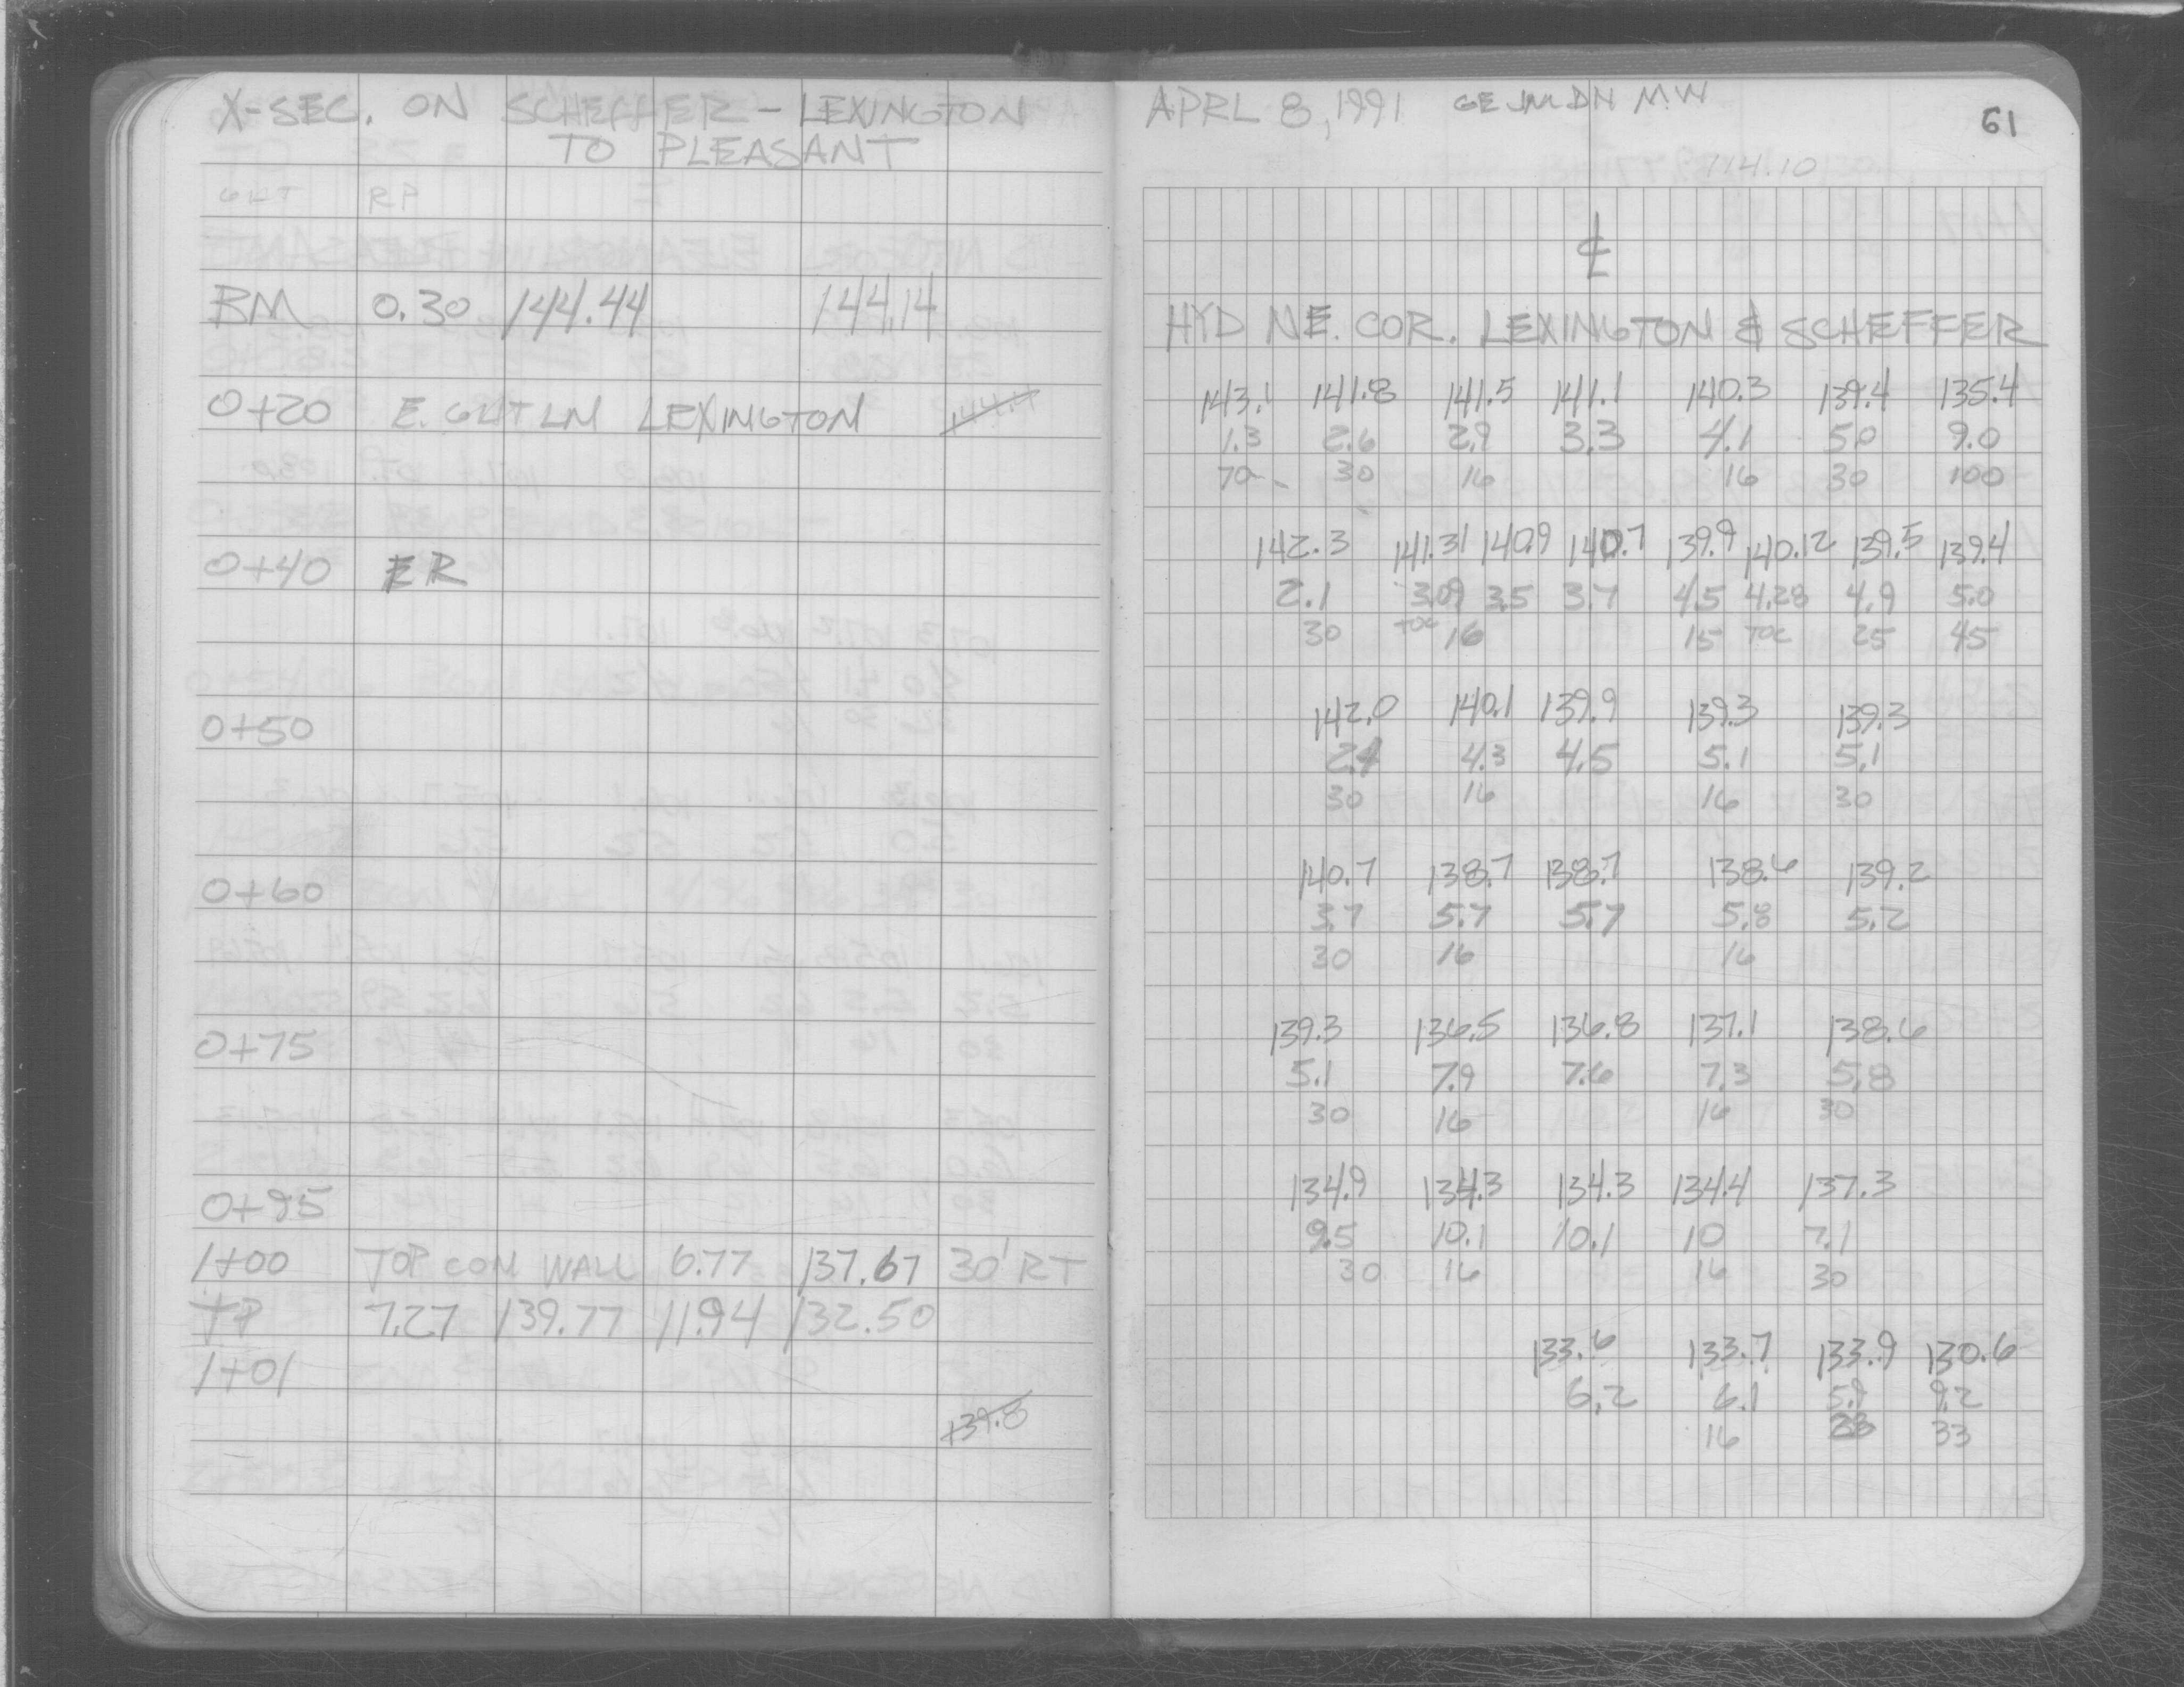 X-SEC. ON SCHEFFER - LEXINGTON
TO PLEASANT
GUT RP
BM 0.30 144.44 144.14
0+20 E. GUT LN LEXINGTON
0+40 ER
0+50
0+60
0+75
0+95
1+00 TOP CON WALL 6.77 137.67 30' RT
TP 7.27 139.77 11.94 132.50
1+01
139.8
APRL 8, 1991 GE JM DN MW
61
114.10
℄
HYD NE. COR. LEXINGTON & SCHEFFER
143.1 141.8 141.5 141.1 140.3 139.4 135.4
1.3 2.6 2.9 3.3 4.1 5.0 9.0
70 30 16 16 30 100
142.3 141.31 140.9 140.7 139.9 140.12 139.5 139.4
2.1 3.09 3.5 3.7 4.5 4.28 4.9 5.0
30 TOC 16 15 TOC 25 45
142.0 140.1 139.9 139.3 139.3
2.4 4.3 4.5 5.1 5.1
30 16 16 30
140.7 138.7 138.7 138.6 139.2
3.7 5.7 5.7 5.8 5.2
30 16 16
139.3 136.5 136.8 137.1 138.6
5.1 7.9 7.6 7.3 5.8
30 16 16 30
134.9 134.3 134.3 134.4 137.3
9.5 10.1 10.1 10 7.1
30 16 16 30
133.6 133.7 133.9 130.6
6.2 6.1 5.9 9.2
16 28 33